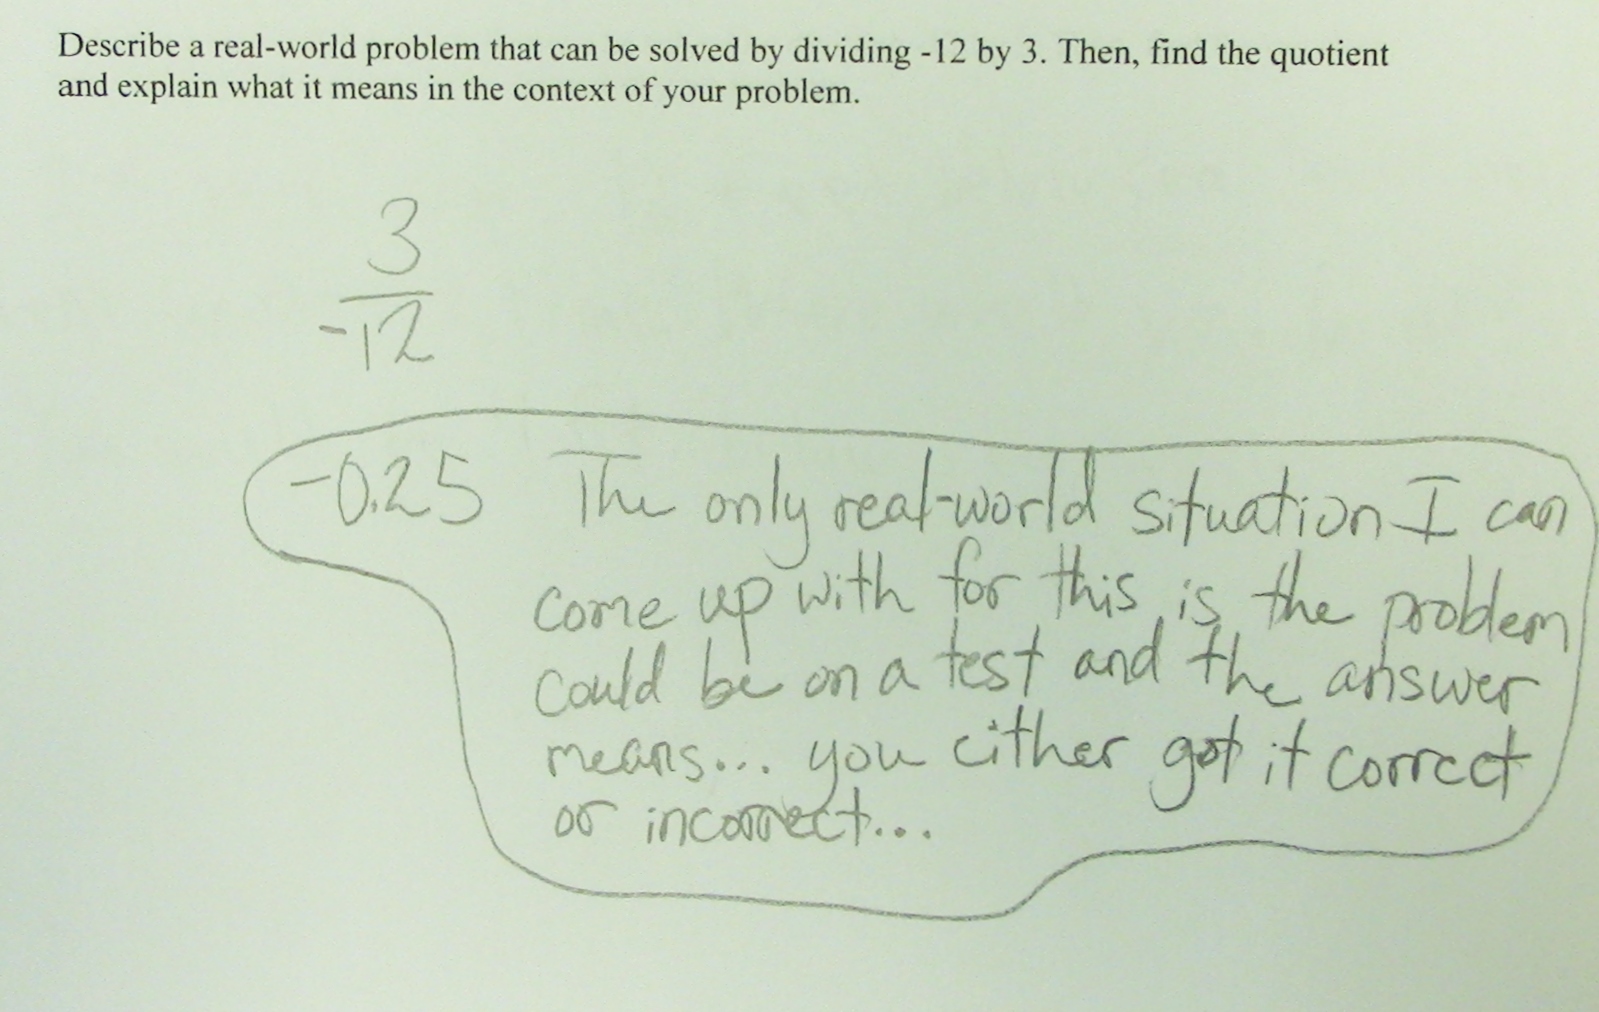 Describe a real-world problem that can be solved by dividing -12 by 3. Then, find the quotient
and explain what it means in the context of your problem.
3
-12
-0.25 The only real-world situation I can
come up with for this is the problem
could be on a test and the answer
means... you either got it correct
or incorrect...